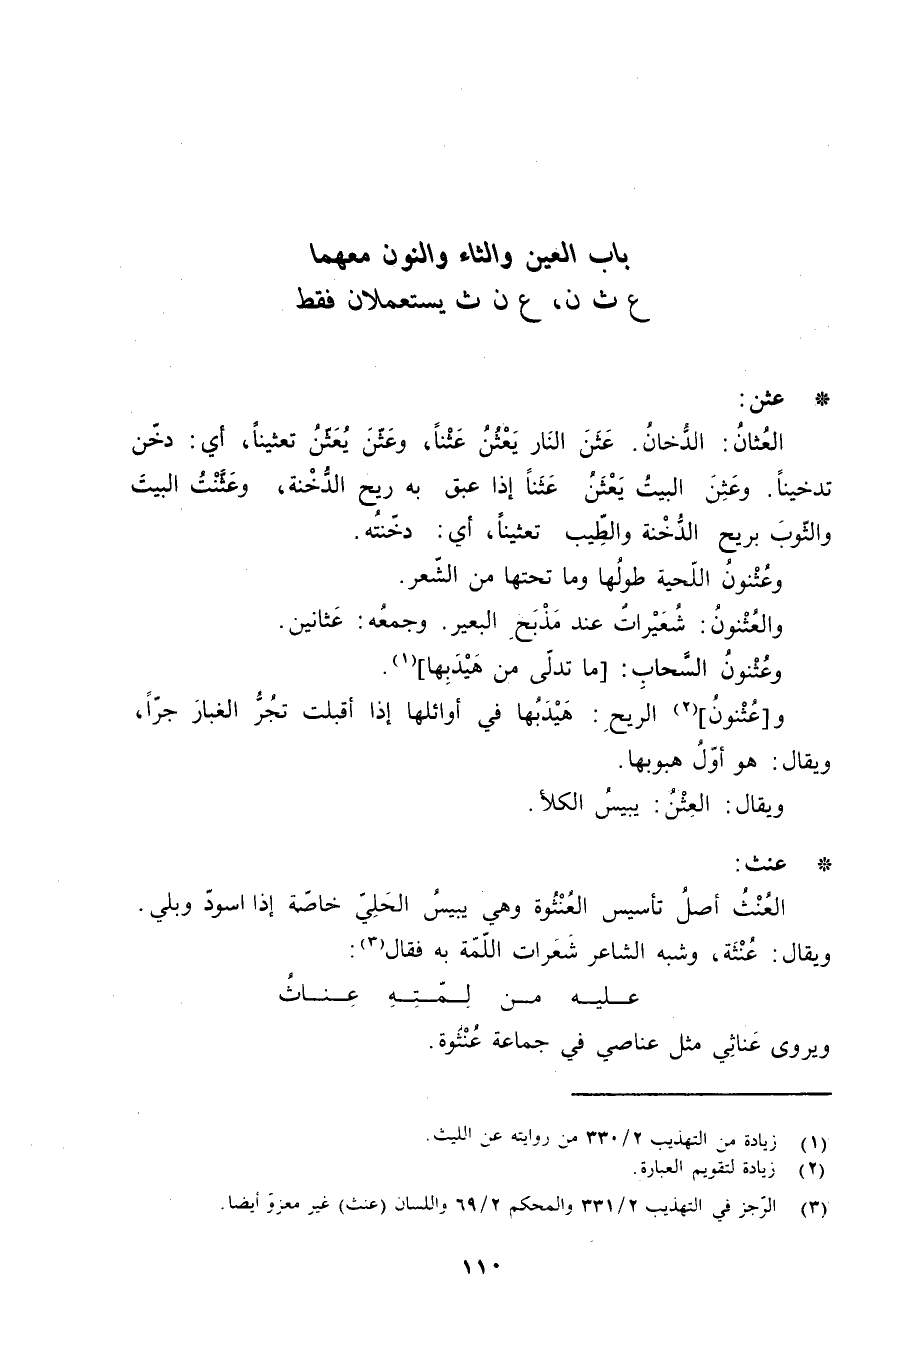 باب العين والثاء والنون معهما
ع ث ن، ع ن ث يستعملان فقط
* عثن:
العُثانُ: الدُّخانُ. عَثَنَ النَار يَعْثُنُ عَثْناً، وعَثّنَ يُعَثّنُ تعثيناً، أي: دخّن
تدخيناً. وعَثِنَ البيتُ يَعْثَنُ عَثَناً إذا عبق به ريح الدُّخْنة، وعَثَّنْتُ البيتَ
والثّوبَ بريح الدُّخْنة والطِّيب تعثيناً، أي: دخّنتُه.
وعُثْنونُ اللّحية طولُها وما تحتها من الشّعر.
والعُثْنونُ: شُعَيْراتٌ عند مَذْبَح البعير. وجمعُه: عَثانين.
وعُثْنونُ السَّحابِ: [ما تدلّى من هَيْدَبِها](١).
و[عُثْنونُ](٢) الريح: هَيْدَبُها في أوائلها إذا أقبلت تجُرُّ الغبارَ جرّاً،
ويقال: هو أوّلُ هبوبها.
ويقال: العِثْنُ: يبيسُ الكلأ.
* عنث:
العُنْثُ أصلُ تأسيس العُنْثُوة وهي يبيسُ الحَلِيّ خاصّة إذا اسودّ وبلي.
ويقال: عُنْثَة، وشبه الشاعر شَعَرات اللّمّة به فقال(٣):
عـلـيـه مـن لِـمّـتِـهِ عِـنـاثُ
ويروى عَناثِي مثل عناصي في جماعة عُنْثُوة.
(١) زيادة من التهذيب ٢/ ٣٣٠ من روايته عن الليث.
(٢) زيادة لتقويم العبارة.
(٣) الرّجز في التهذيب ٢/ ٣٣١ والمحكم ٢/ ٦٩ واللسان (عنث) غير معزوّ أيضا.
١١٠